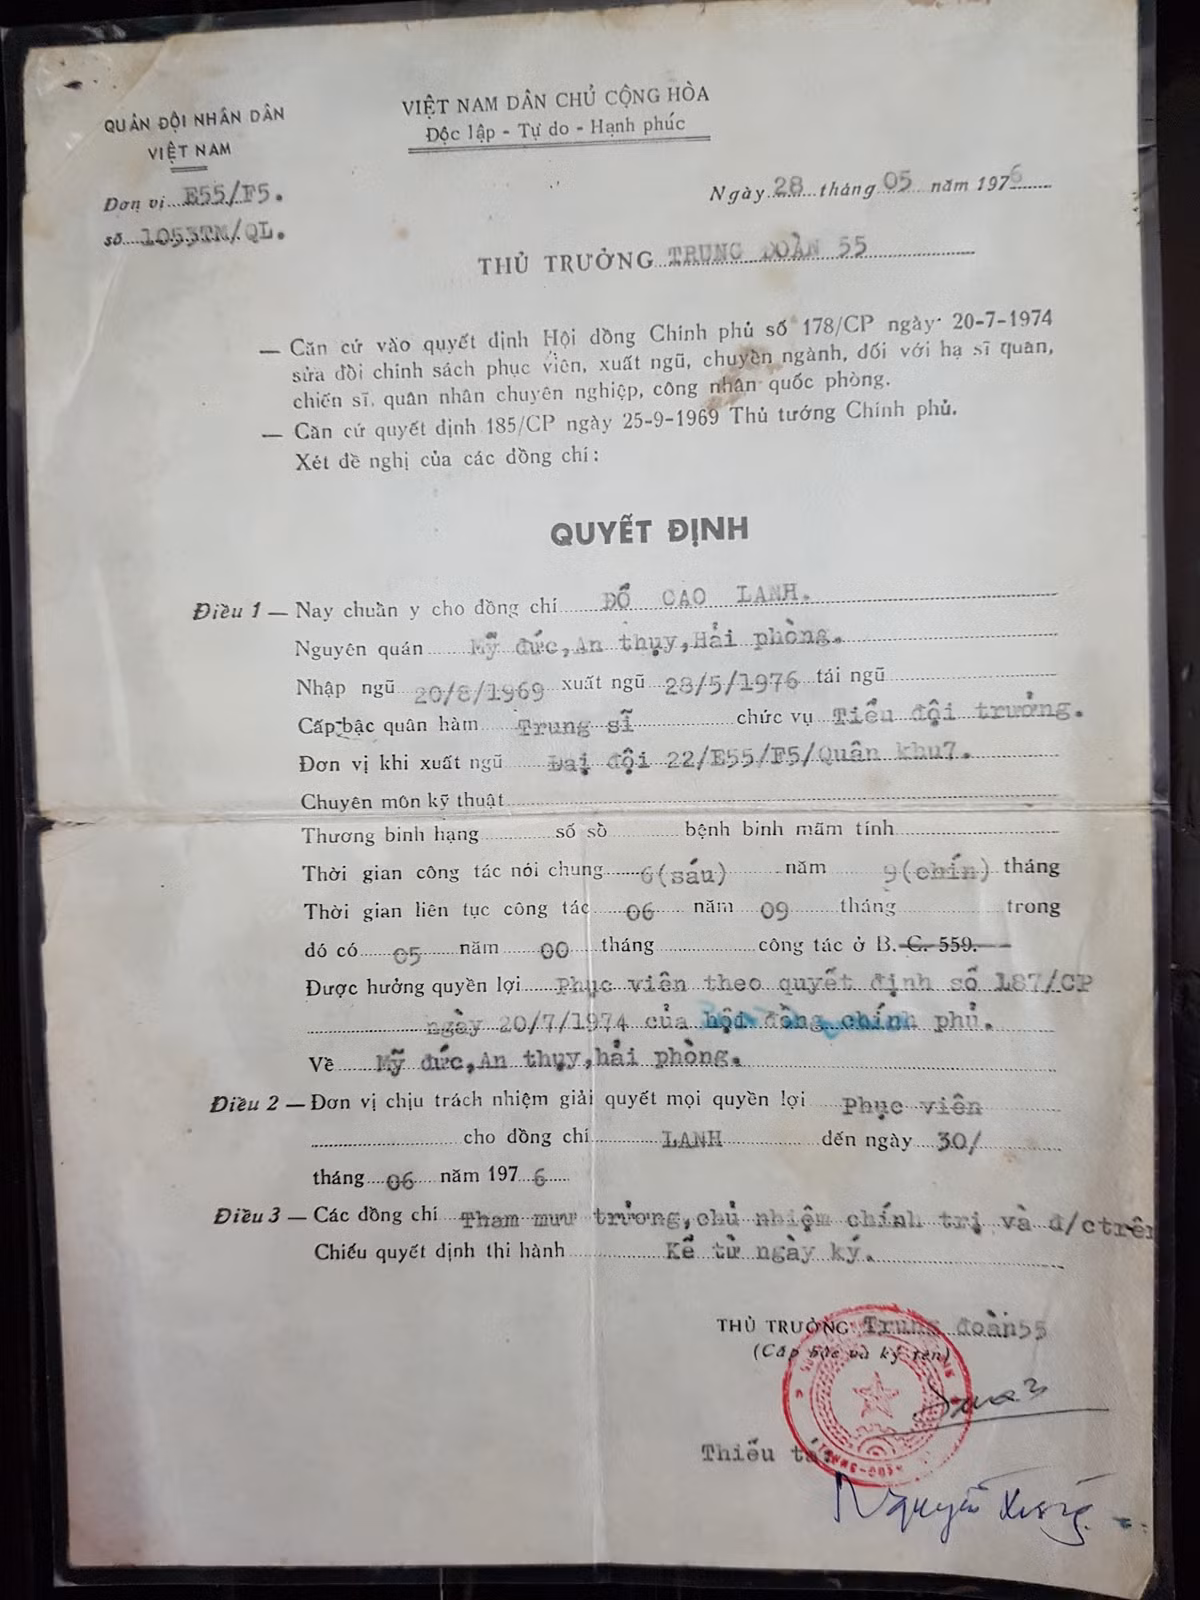 QUÂN ĐỘI NHÂN DÂN
VIỆT NAM
Đơn vị E55/F5.
số 1053TM/QL.
VIỆT NAM DÂN CHỦ CỘNG HÒA
Độc lập - Tự do - Hạnh phúc
Ngày 28 tháng 05 năm 1976
THỦ TRƯỞNG TRUNG ĐOÀN 55
— Căn cứ vào quyết định Hội đồng Chính phủ số 178/CP ngày 20-7-1974
sửa đổi chính sách phục viên, xuất ngũ, chuyển ngành, đối với hạ sĩ quan,
chiến sĩ. quân nhân chuyên nghiệp, công nhân quốc phòng.
— Căn cứ quyết định 185/CP ngày 25-9-1969 Thủ tướng Chính phủ.
Xét đề nghị của các đồng chí:
QUYẾT ĐỊNH
Điều 1 — Nay chuẩn y cho đồng chí ĐỖ CAO LANH.
Nguyên quán Mỹ đức,An thụy,Hải phòng.
Nhập ngũ 20/8/1969 xuất ngũ 28/5/1976 tái ngũ
Cấp bậc quân hàm Trung sĩ chức vụ Tiểu đội trưởng.
Đơn vị khi xuất ngũ Đại đội 22/E55/F5/Quân khu7.
Chuyên môn kỹ thuật
Thương binh hạng số sổ bệnh binh mãm tính
Thời gian công tác nói chung 6(sáu) năm 9(chín) tháng
Thời gian liên tục công tác 06 năm 09 tháng trong
đó có 05 năm 00 tháng công tác ở B. C. 559.
Được hưởng quyền lợi Phục viên theo quyết định số 187/CP
ngày 20/7/1974 của hội đồng chính phủ.
Về Mỹ đức,An thụy,hải phòng.
Điều 2 — Đơn vị chịu trách nhiệm giải quyết mọi quyền lợi Phục viên
cho đồng chí LANH đến ngày 30/
tháng 06 năm 1976
Điều 3 — Các đồng chí Tham mưu trưởng,chủ nhiệm chính trị và đ/ctrên
Chiếu quyết định thi hành Kể từ ngày ký.
THỦ TRƯỞNG Trung đoàn55
(Cấp bậc và ký tên)
Thiếu tá
Nguyễn